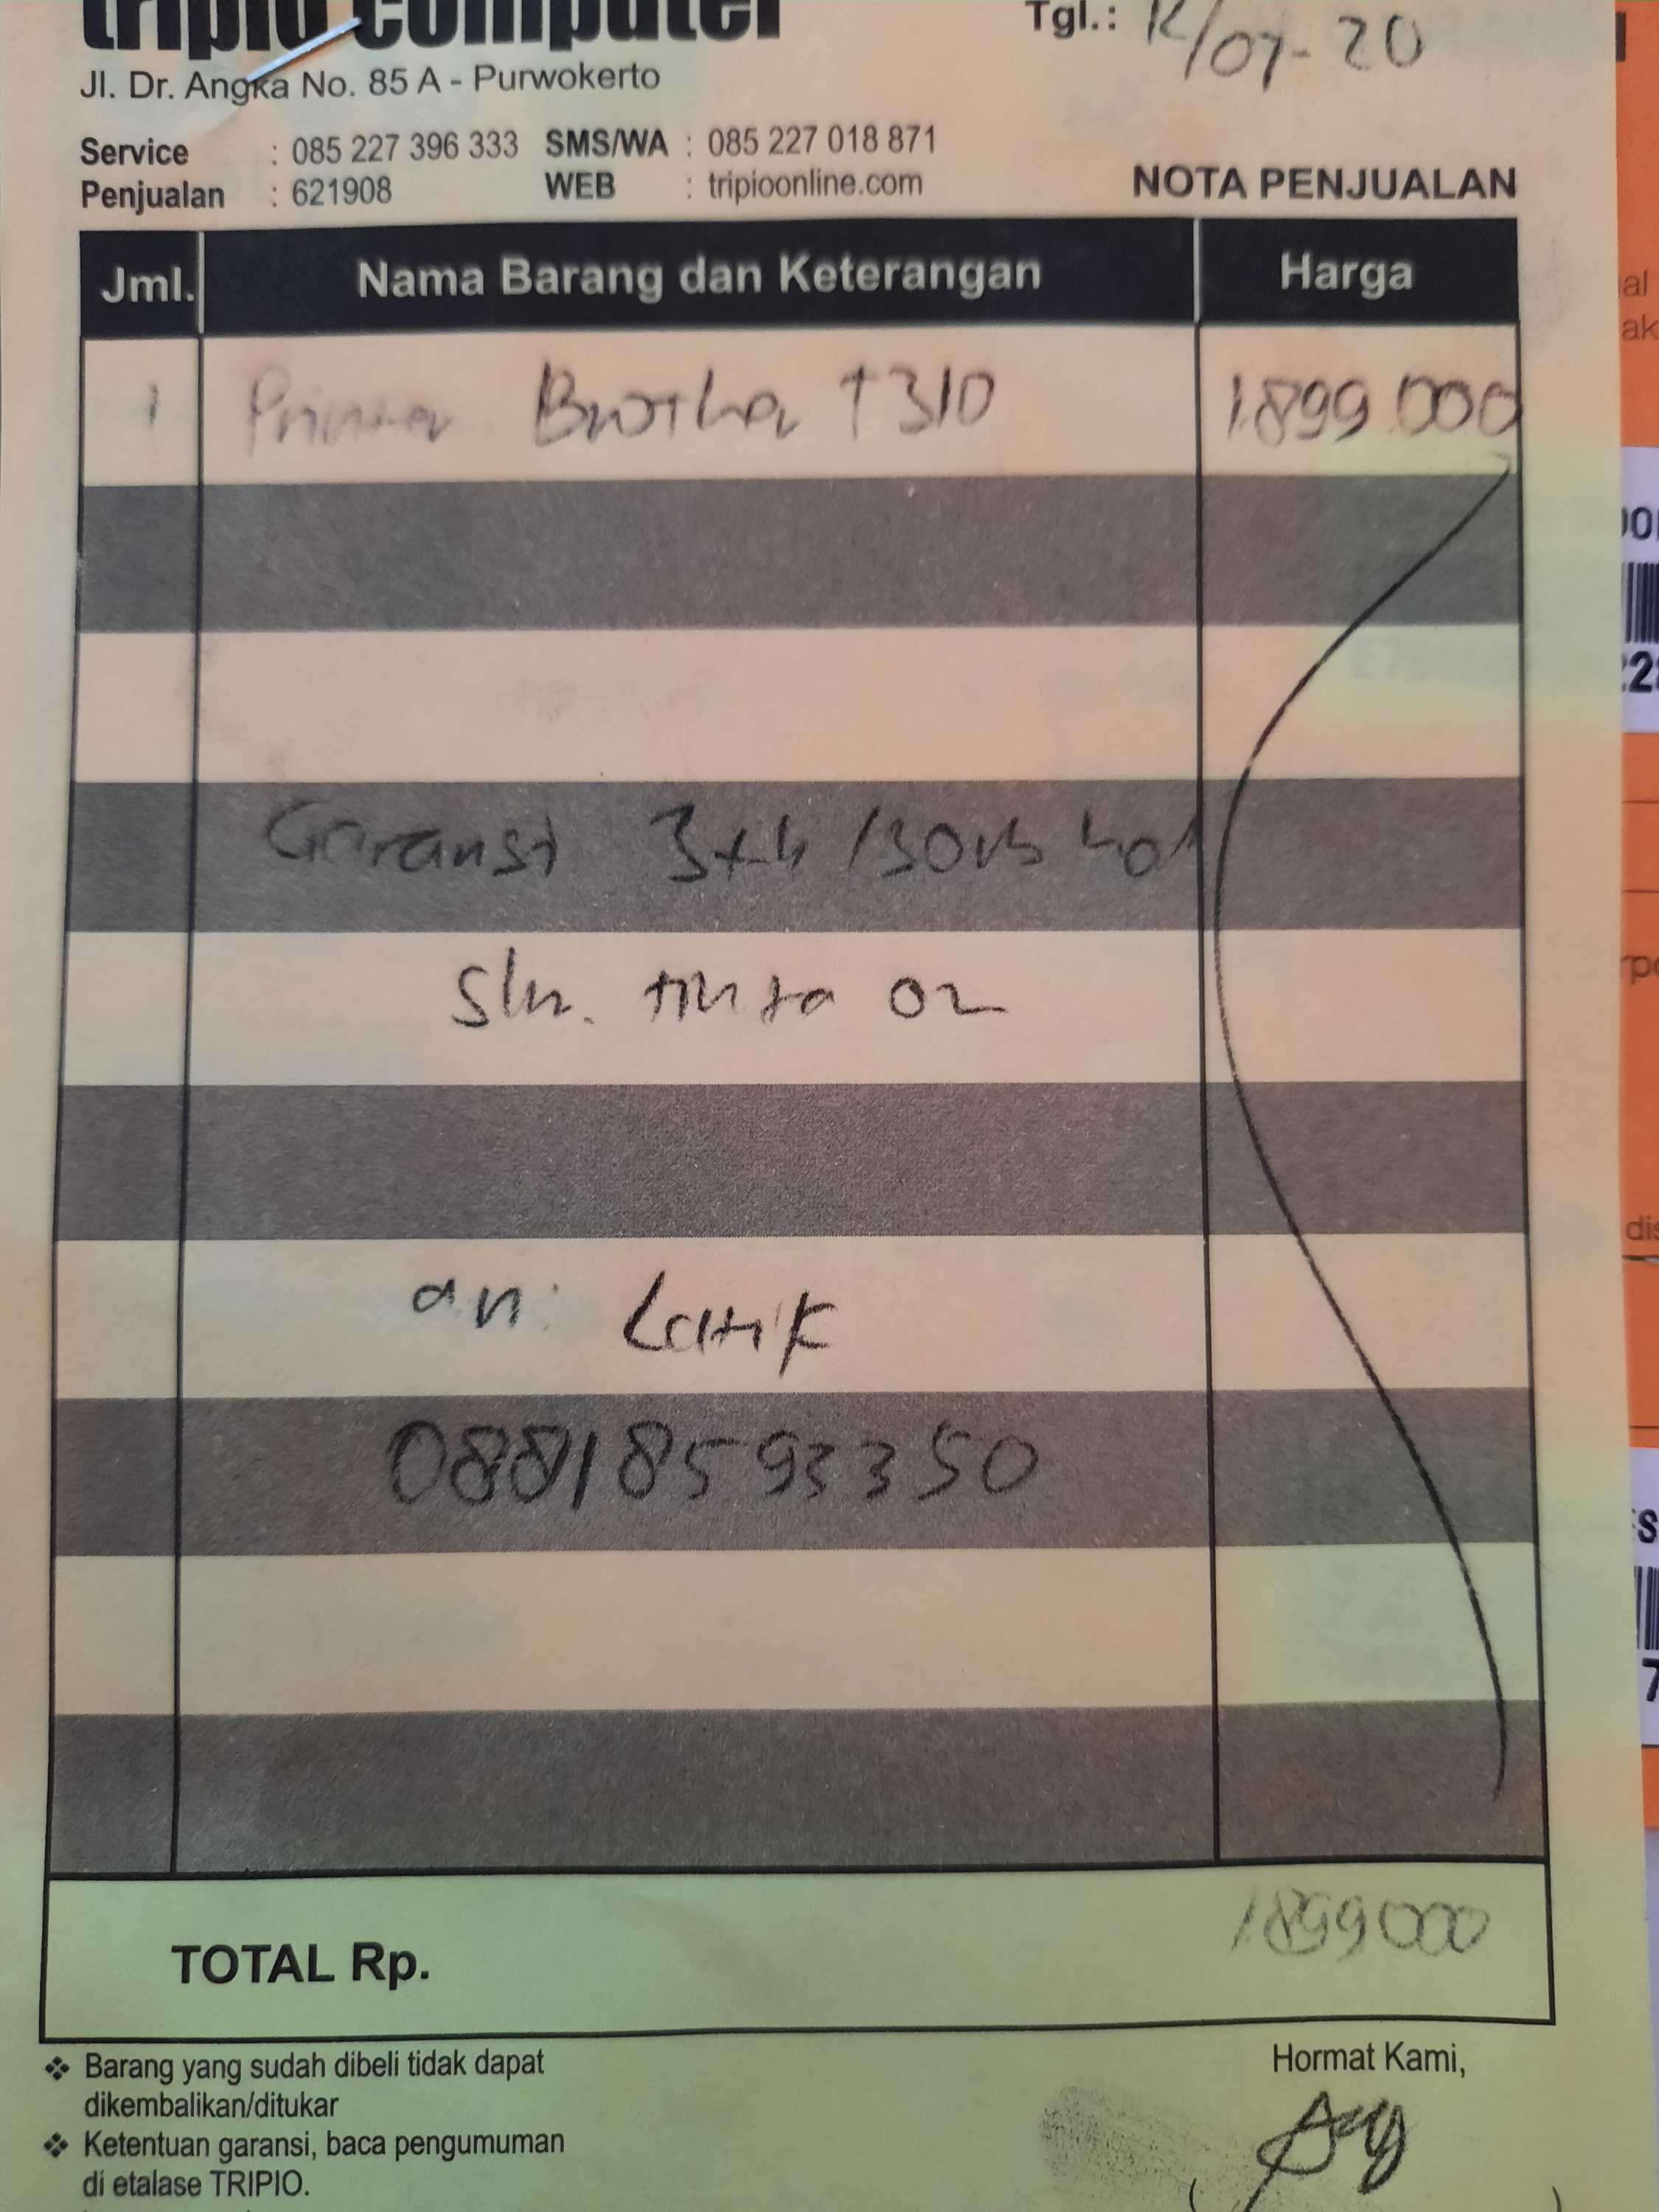 tripio computer
Jl. Dr. Angka No. 85 A - Purwokerto
Tgl.: 12/07-20
Service : 085 227 396 333 SMS/WA : 085 227 018 871
Penjualan : 621908 WEB : tripioonline.com
NOTA PENJUALAN
Jml. Nama Barang dan Keterangan Harga
1 Printer Brother T310 1.899.000
Garansi 3th /30rb
tinta
an: Latik
08818593350
TOTAL Rp. 1899000
❖ Barang yang sudah dibeli tidak dapat
dikembalikan/ditukar
❖ Ketentuan garansi, baca pengumuman
di etalase TRIPIO.
Hormat Kami,
al
ak
dis